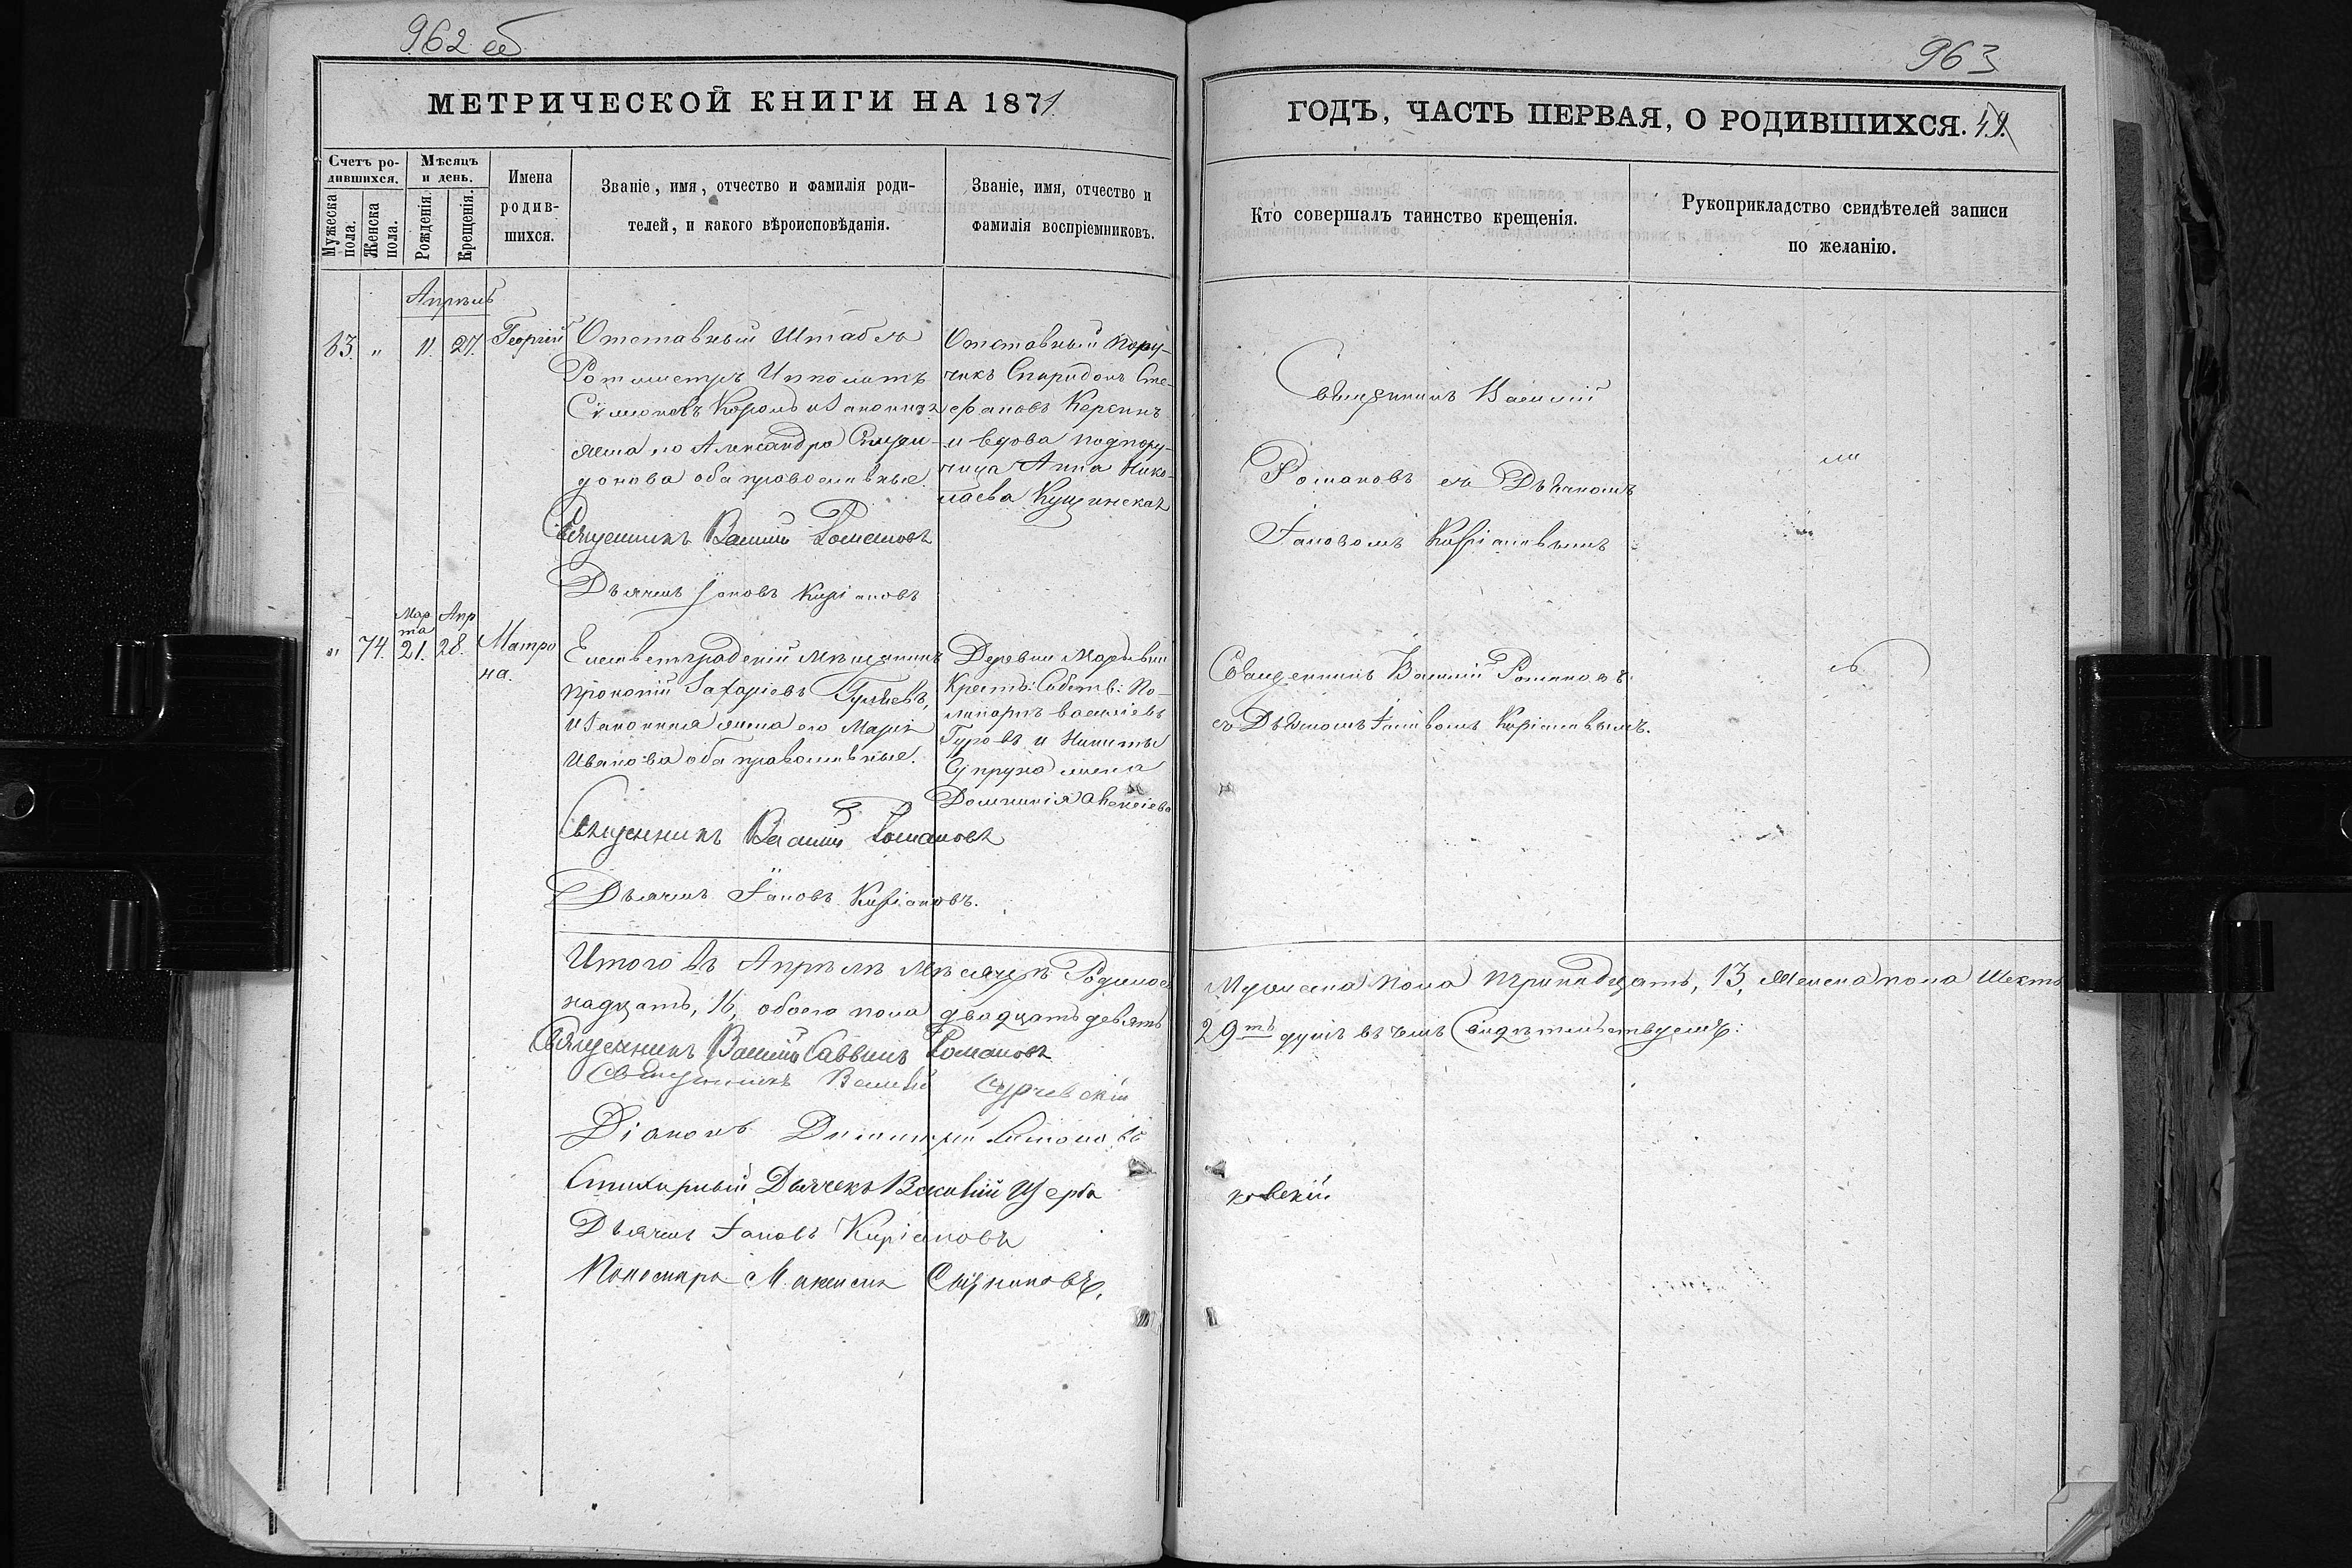 962 об
МЕТРИЧЕСКОЙ КНИГИ НА 1871
Счетъ ро-
дившихся.
Мужеска пола.
Женска пола.
Мѣсяцъ
и день.
Рожденія.
Крещенія.
Имена
родив-
шихся.
Званіе, имя, отчество и фамилія роди-
телей, и какого вѣроисповѣданія.
Званіе, имя, отчество и
фамилія воспріемниковъ.
Апрѣль
83. „ 11. 27. Георгій
Отставный Штабсъ
Ротмистръ Ипполитъ
Сѵмеоновъ Король и законная
жена его Александра Спири-
донова оба православные.
Священникъ Василій Романовъ
Дьячекъ Іаковъ Киріаковъ
Отставный Пору-
чикъ Спиридонъ Сте-
фановъ
и вдова подпору-
чица Анна Нико-
лаева
Мар
та
Апр
„ 74. 21. 28. Матро
на.
Елисаветградскій мѣщанинъ
Прокопій Захаріевъ
и законная жена его Марія
Иванова оба православные.
Священникъ Василій Романовъ
Дьячекъ Іаковъ Киріаковъ.
Деревни
Крестъ: Собств: По-
ликарпъ Василіевъ
Гуровъ и Никиты
Супруга жена
Домникія Алексіева
Итого въ Апрѣлѣ мѣсяцѣ Родилось
надцать, 16, обоего пола двадцать девять
Священникъ Василій Саввинъ Романовъ
Священникъ Василій
Діаконъ Димитрій
Стихарный Дьячекъ Василий Щерба
Дьячекъ Іаковъ Киріаковъ
Пономарь Максимъ
963
ГОДЪ, ЧАСТЬ ПЕРВАЯ, О РОДИВШИХСЯ. 49.
Кто совершалъ таинство крещенія.
Рукоприкладство свидѣтелей записи
по желанію.
Священникъ Василій
Романовъ съ Дьячкомъ
Іаковомъ Киріаковымъ
Священникъ Василій Романовъ
съ Дьячкомъ Іаковомъ Киріаковымъ.
Мужеска пола тринадцать, 13, Женска пола Шест
29ть душъ въ чемъ Свидѣтельствуемъ:
ковскій